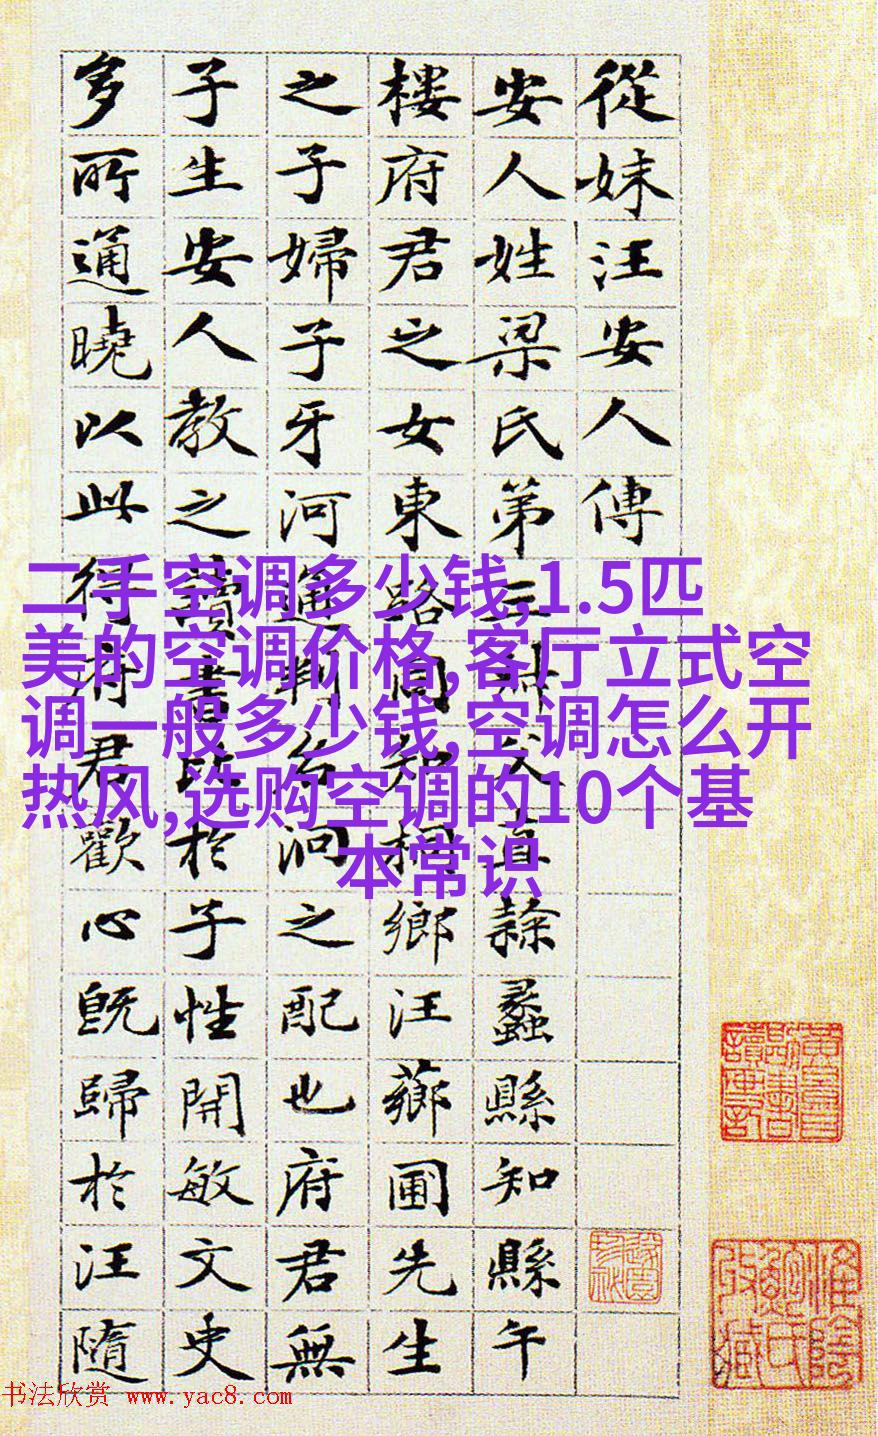 從妹汪安人傳
安人姓梁氏第三叔父直隸蠡縣知縣午
樓府君之女東路同知桐鄉汪薌圃先生
之子婦子牙河通判台泂之配也府君無
子生安人教之讀書比於子性開敏文史
多所通曉以此得府君歡心既歸於汪隨
二手空调多少钱,1.5匹
美的空调价格,客厅立式空
调一般多少钱,空调怎么开
热风,选购空调的10个基
本常识
书法欣赏 www.yac8.com